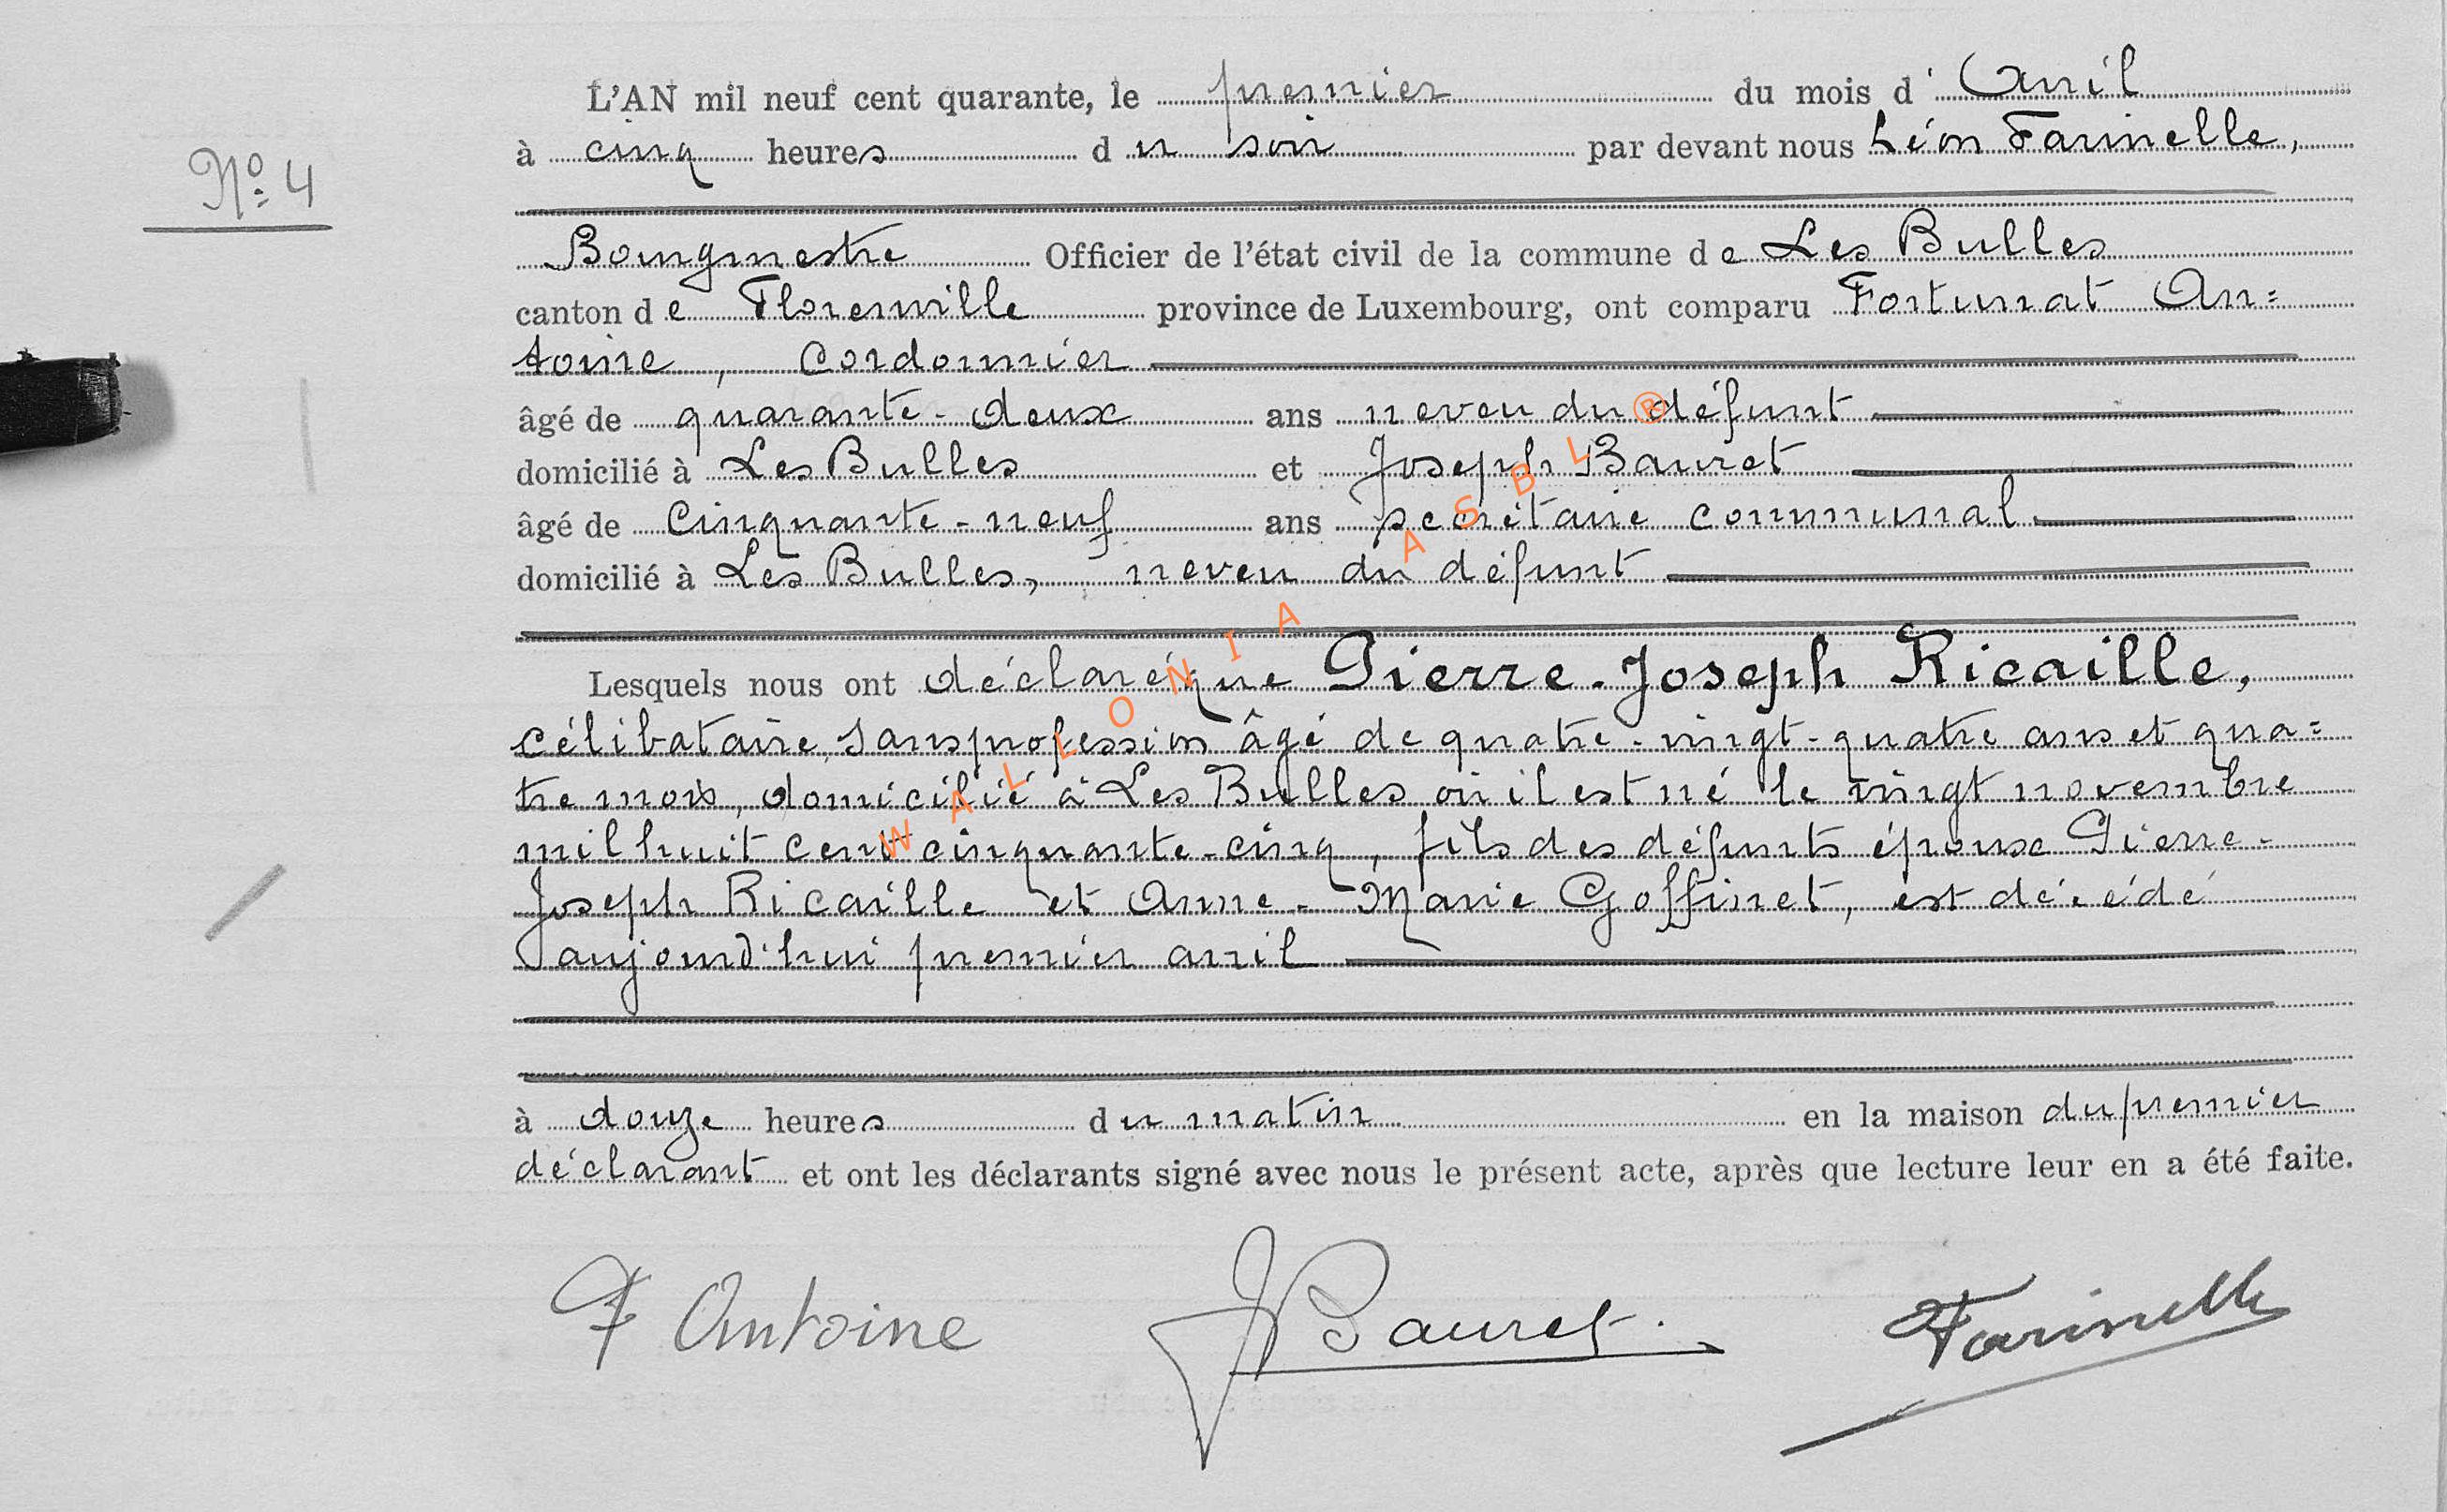 L'AN mil neuf cent quarante, le premier du mois d' Avril
à cinq heures du soir par devant nous Léon Farinelle,
No. 4
Bourgmestre Officier de l'état civil de la commune de Les Bulles
canton de Florenville province de Luxembourg, ont comparu Fortunat An=
toine, Cordonnier
âgé de quarante-deux ans neveu du défunt
domicilié à Les Bulles et Joseph Bauret
âgé de Cinquante-neuf ans secrétaire communal
domicilié à Les Bulles, neveu du défunt
Lesquels nous ont déclaré que Pierre-Joseph Ricaille,
célibataire, sans profession âgé de quatre-vingt-quatre ans et qua=
tre mois, domicilié à Les Bulles où il est né le vingt novembre
mil huit cent cinquante-cinq, fils des défunts époux Pierre-
Joseph Ricaille et Anne-Marie Goffinet, est décédé
aujourd'hui premier avril
à douze heures du matin en la maison du premier
déclarant et ont les déclarants signé avec nous le présent acte, après que lecture leur en a été faite.
F Antoine J Bauret. Farinelle
WALLONIA ASBL ®